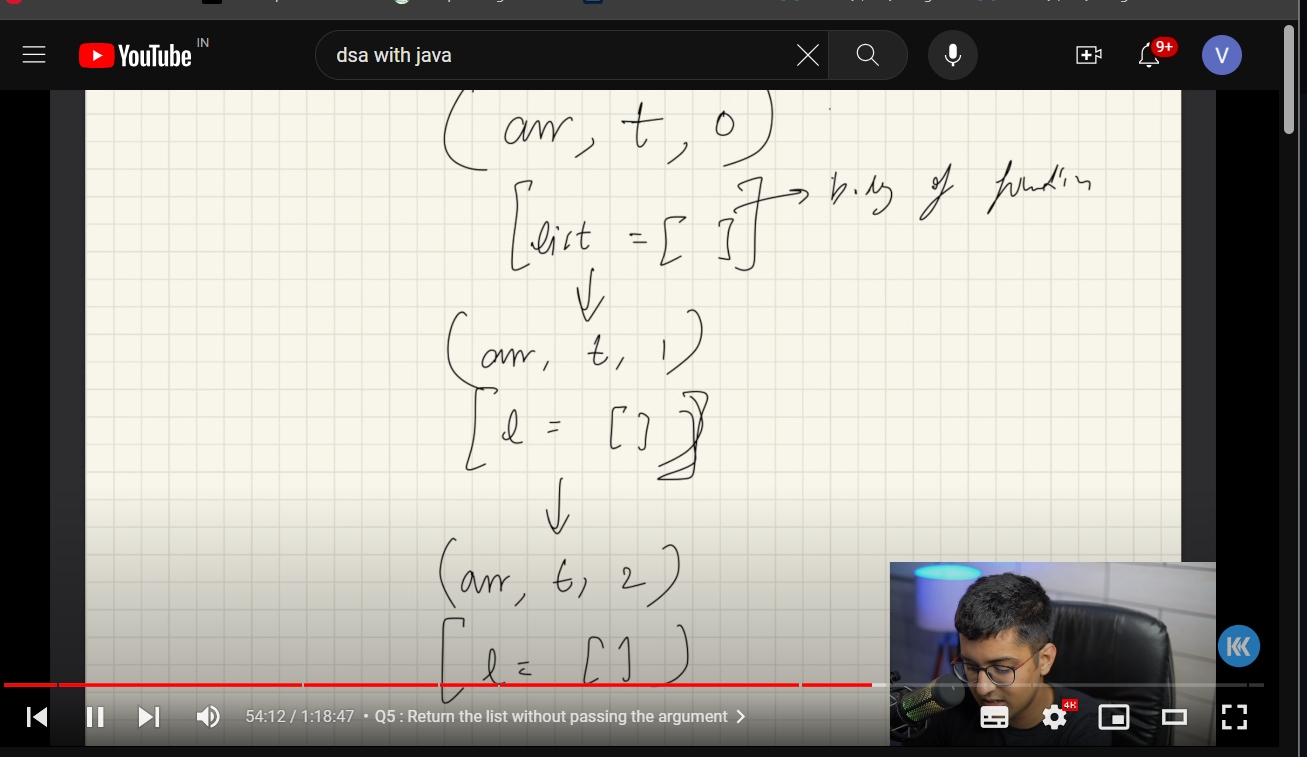 YouTube IN
dsa with java
9+
V
(arr, t, 0)
[list = [ ]] → body of function
(arr, t, 1)
[l = [ ]]
(arr, t, 2)
[l = [ ])
54:12 / 1:18:47 • Q5 : Return the list without passing the argument
4K